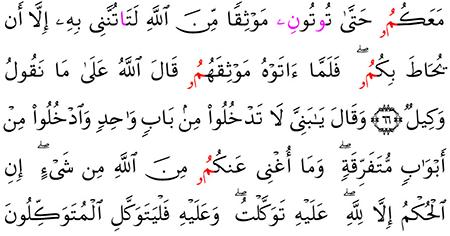 مَعَكُمُۥ حَتَّىٰ تُوتُونِۦ مَوْثِقًا مِّنَ ٱللَّهِ لَتَاتُنَّنِى بِهِۦٓ إِلَّآ أَن
يُحَاطَ بِكُمُۥۖ فَلَمَّآ ءَاتَوْهُ مَوْثِقَهُمُۥ قَالَ ٱللَّهُ عَلَىٰ مَا نَقُولُ
وَكِيلٌ ۝٦٦ وَقَالَ يَـٰبَنِىَّ لَا تَدْخُلُوا۟ مِنۢ بَابٍ وَٰحِدٍ وَٱدْخُلُوا۟ مِنْ
أَبْوَٰبٍ مُّتَفَرِّقَةٍۖ وَمَآ أُغْنِى عَنكُمُۥ مِنَ ٱللَّهِ مِن شَىْءٍۖ إِنِ
ٱلْحُكْمُ إِلَّا لِلَّهِۖ عَلَيْهِ تَوَكَّلْتُۖ وَعَلَيْهِ فَلْيَتَوَكَّلِ ٱلْمُتَوَكِّلُونَ